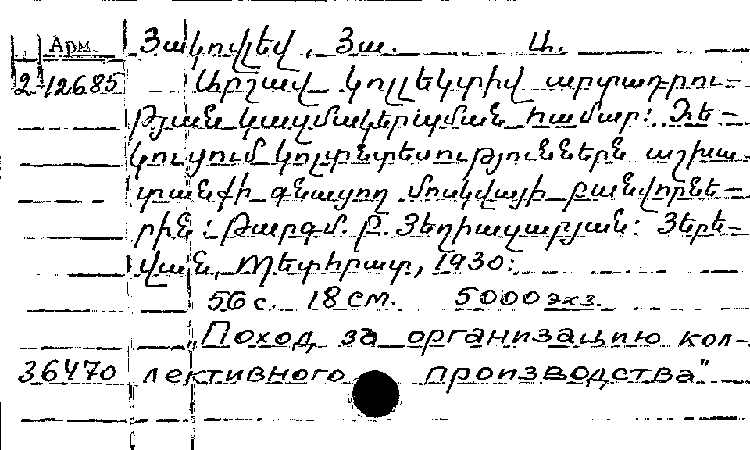 Арм. Յակովլեվ, Յա. Ա.
2-12685 Արշավ կոլլեկտիվ արտադրու-
թյան կազմակերպման համար: Զե-
կուցում կոլտնտեսություններն աշխա-
տանքի գնացող մոսկվայի բանվորնե-
րին: Թարգմ. Բ. Յեղիազարյան: Յերե-
վան, Պետհրատ, 1930:
56 с. 18 см. 5000 экз.
„Поход за организацию кол-
36470 лективного производства"